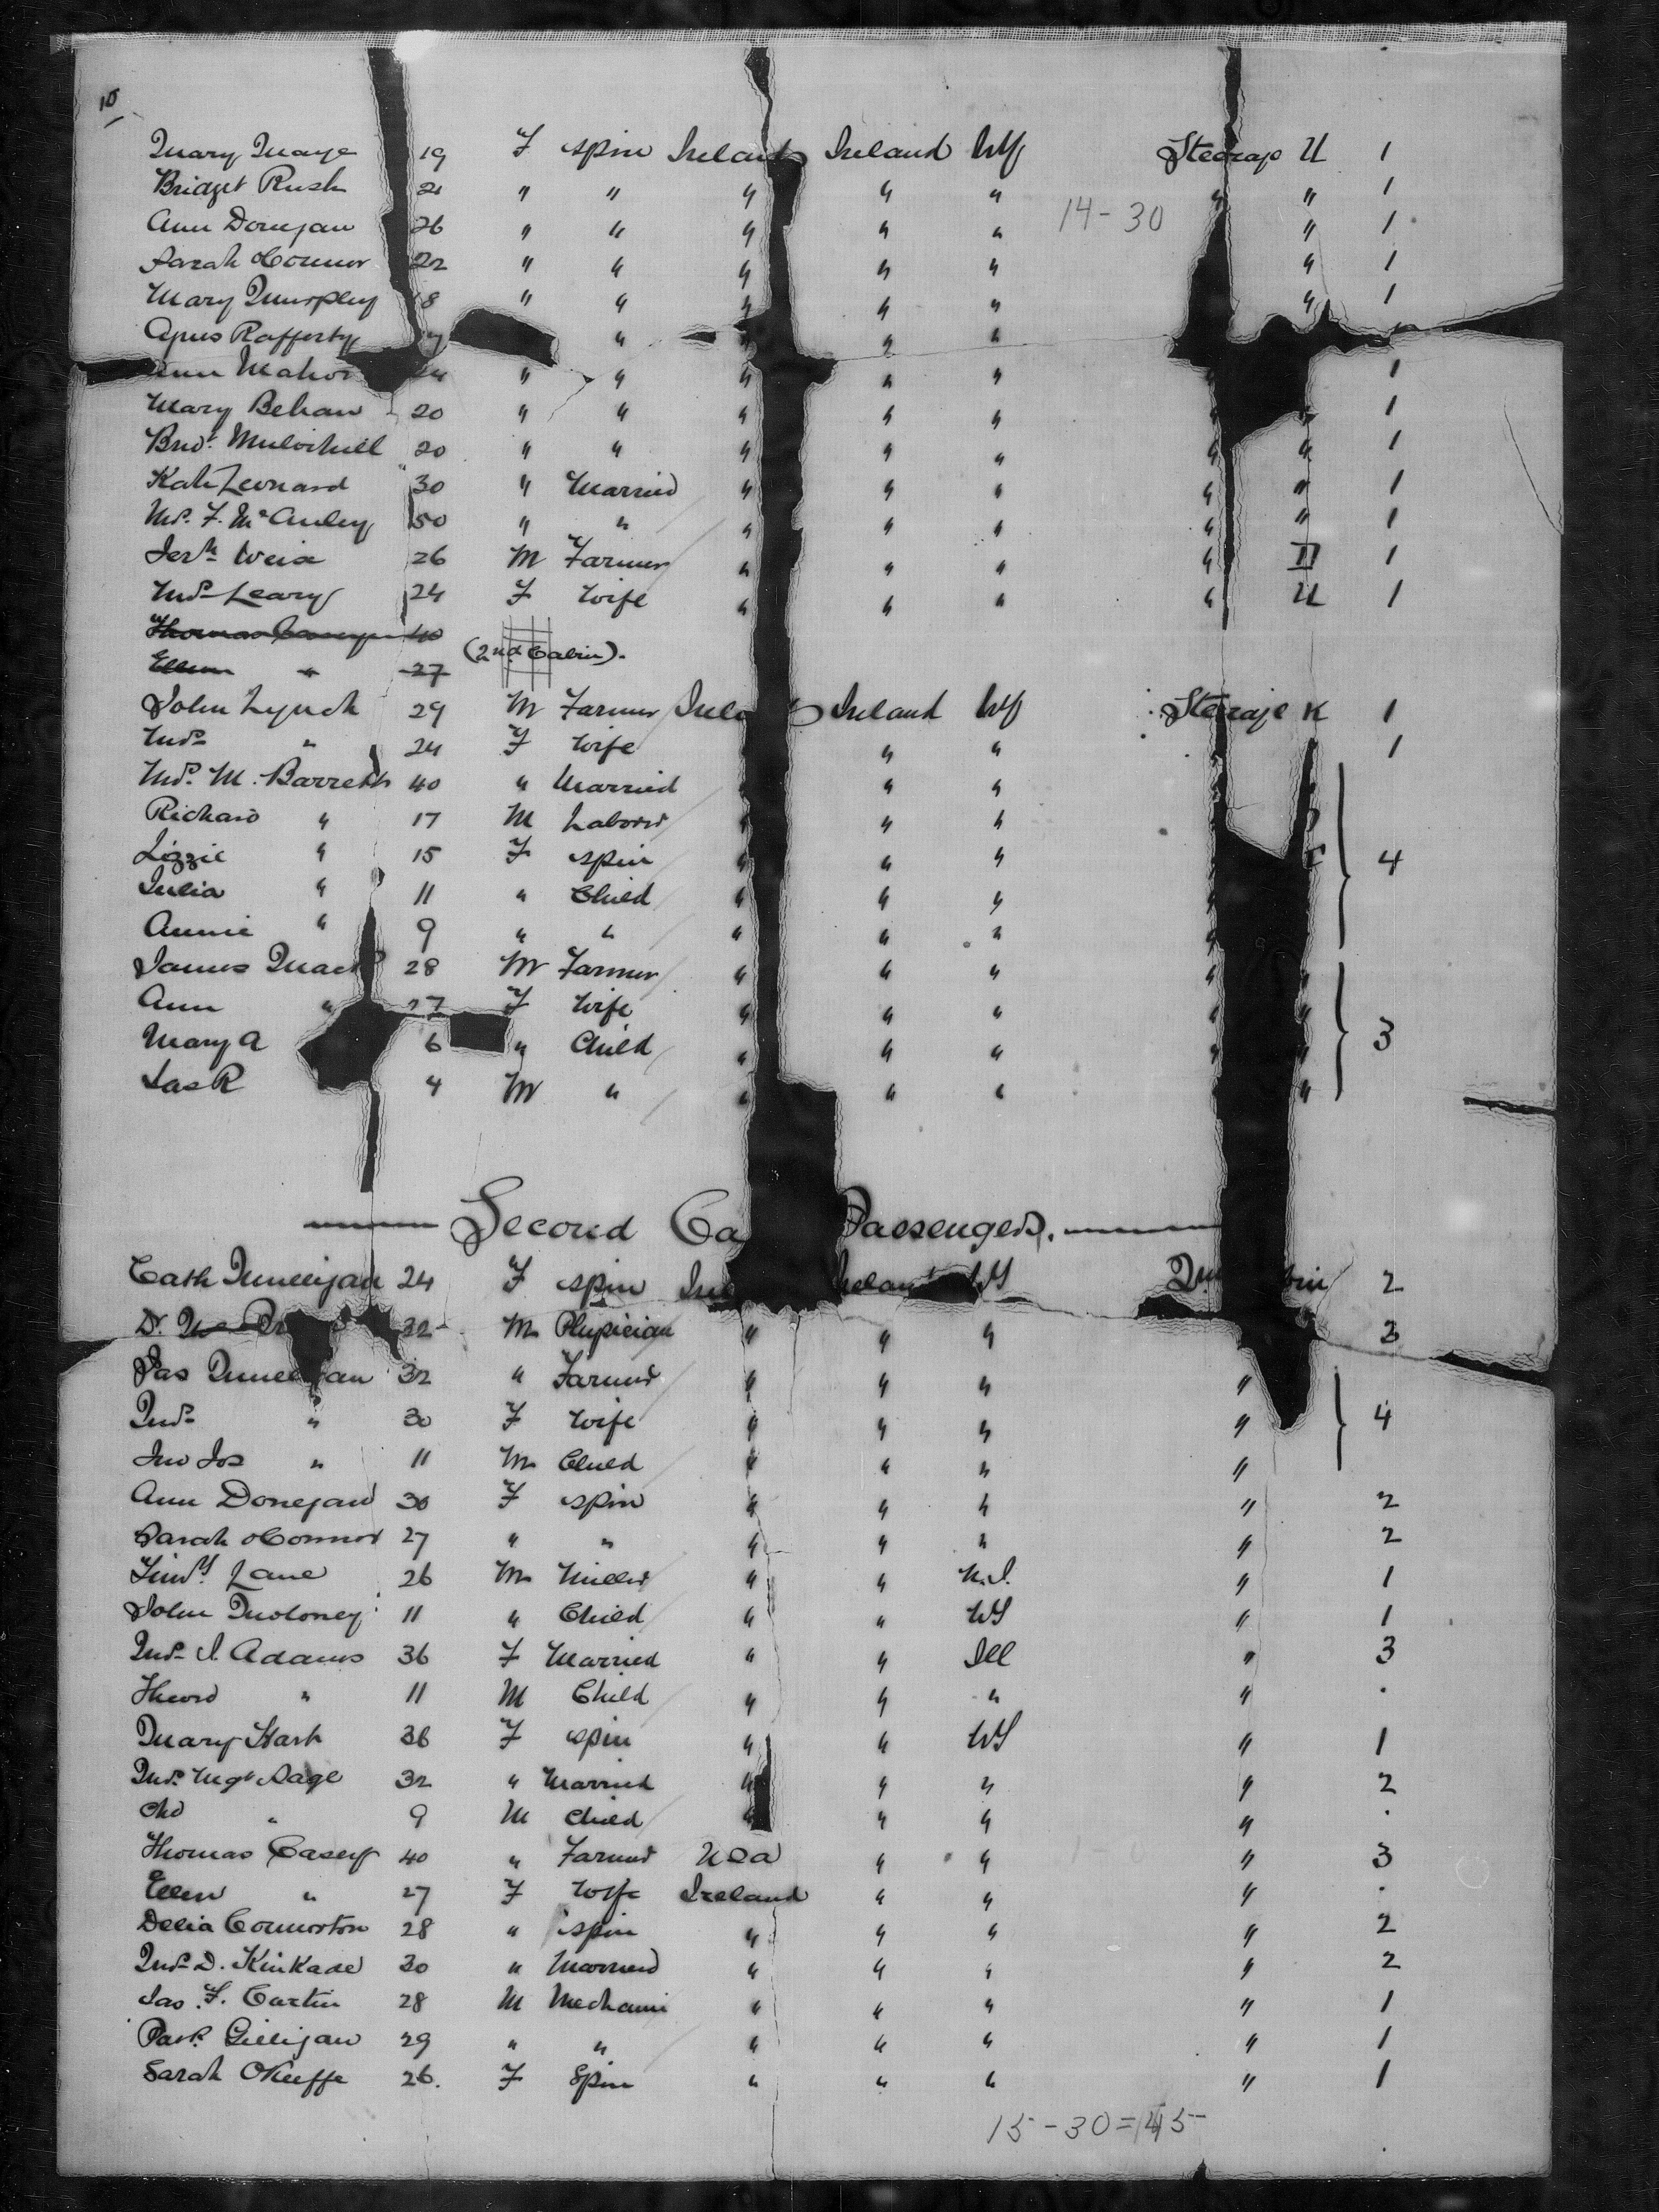 15
Mary Maye 19 F spin Ireland Ireland NY Steerage U 1
Bridget Rush 21 " " " " " " " 1
14-30
Ann Donegan 26 " " " " " " 1
Sarah OConnor 22 " " " " " " 1
Mary Murphy 18 " " " " " " 1
Agnes Rafferty " " "
Ann Mahon 24 " " " " " 1
Mary Behan 20 " " " " " " " 1
Brid.t Mulvihill 20 " " " " " " " 1
Kate Leonard 30 " Married " " " " " 1
Mrs. F. McAuley 50 " " " " " " " 1
Jerh 26 M Farmer " " " " II 1
Mrs Leary 24 F Wife " " " " U 1
Thomas Casey 40
Ellen " 27 (2nd Cabin).
John Lynch 29 M Farmer Ireland Ireland NY Steerage K 1
Mrs " 24 F Wife " " 1
Mrs. M. Barrett 40 " Married " "
Richard " 17 M Laborer " " "
Lizzie " 15 F spin " " " 4
Julia " 11 " Child " " "
Annie " 9 " " " " "
James Mack 28 M Farmer " " " " "
Ann " 27 F Wife " " " " "
Mary A 6 " Child " " " " " 3
Jas R 4 M " " " " "
Second Ca Passengers.
Cath Mulligan 24 F spin Ire Ireland NY 2
D. 32 M Physician " " " 3
Jas Mulligan 32 " Farmer " " " "
Mrs " 30 F Wife " " " " 4
Jno Jos " 11 M Child " " " "
Ann Donegan 30 F spin " " " " 2
Sarah OConnor 27 " " " " " " 2
Timy. Lane 26 M Miller " " " 1
John Moloney 11 " Child " " NY " 1
Mrs J. Adams 36 F Married " " Ill " 3
" 11 M Child " " " " .
Mary Hart 36 F spin " " NY " 1
Mrs. Mgt Sage 32 " Married " " " " 2
" 9 M Child " " " " .
Thomas Casey 40 " Farmer USA " " " 3
Ellen " 27 F Wife Ireland " " " .
Delia Connorton 28 " spin " " " " 2
Mrs D. Kinkade 30 " Married " " " " 2
Jas. F. Cartin 28 M Mechanic " " " " 1
Patk. Gilligan 29 " " " " " " 1
Sarah OKeeffe 26. F Spin " " " " 1
15-30=45-